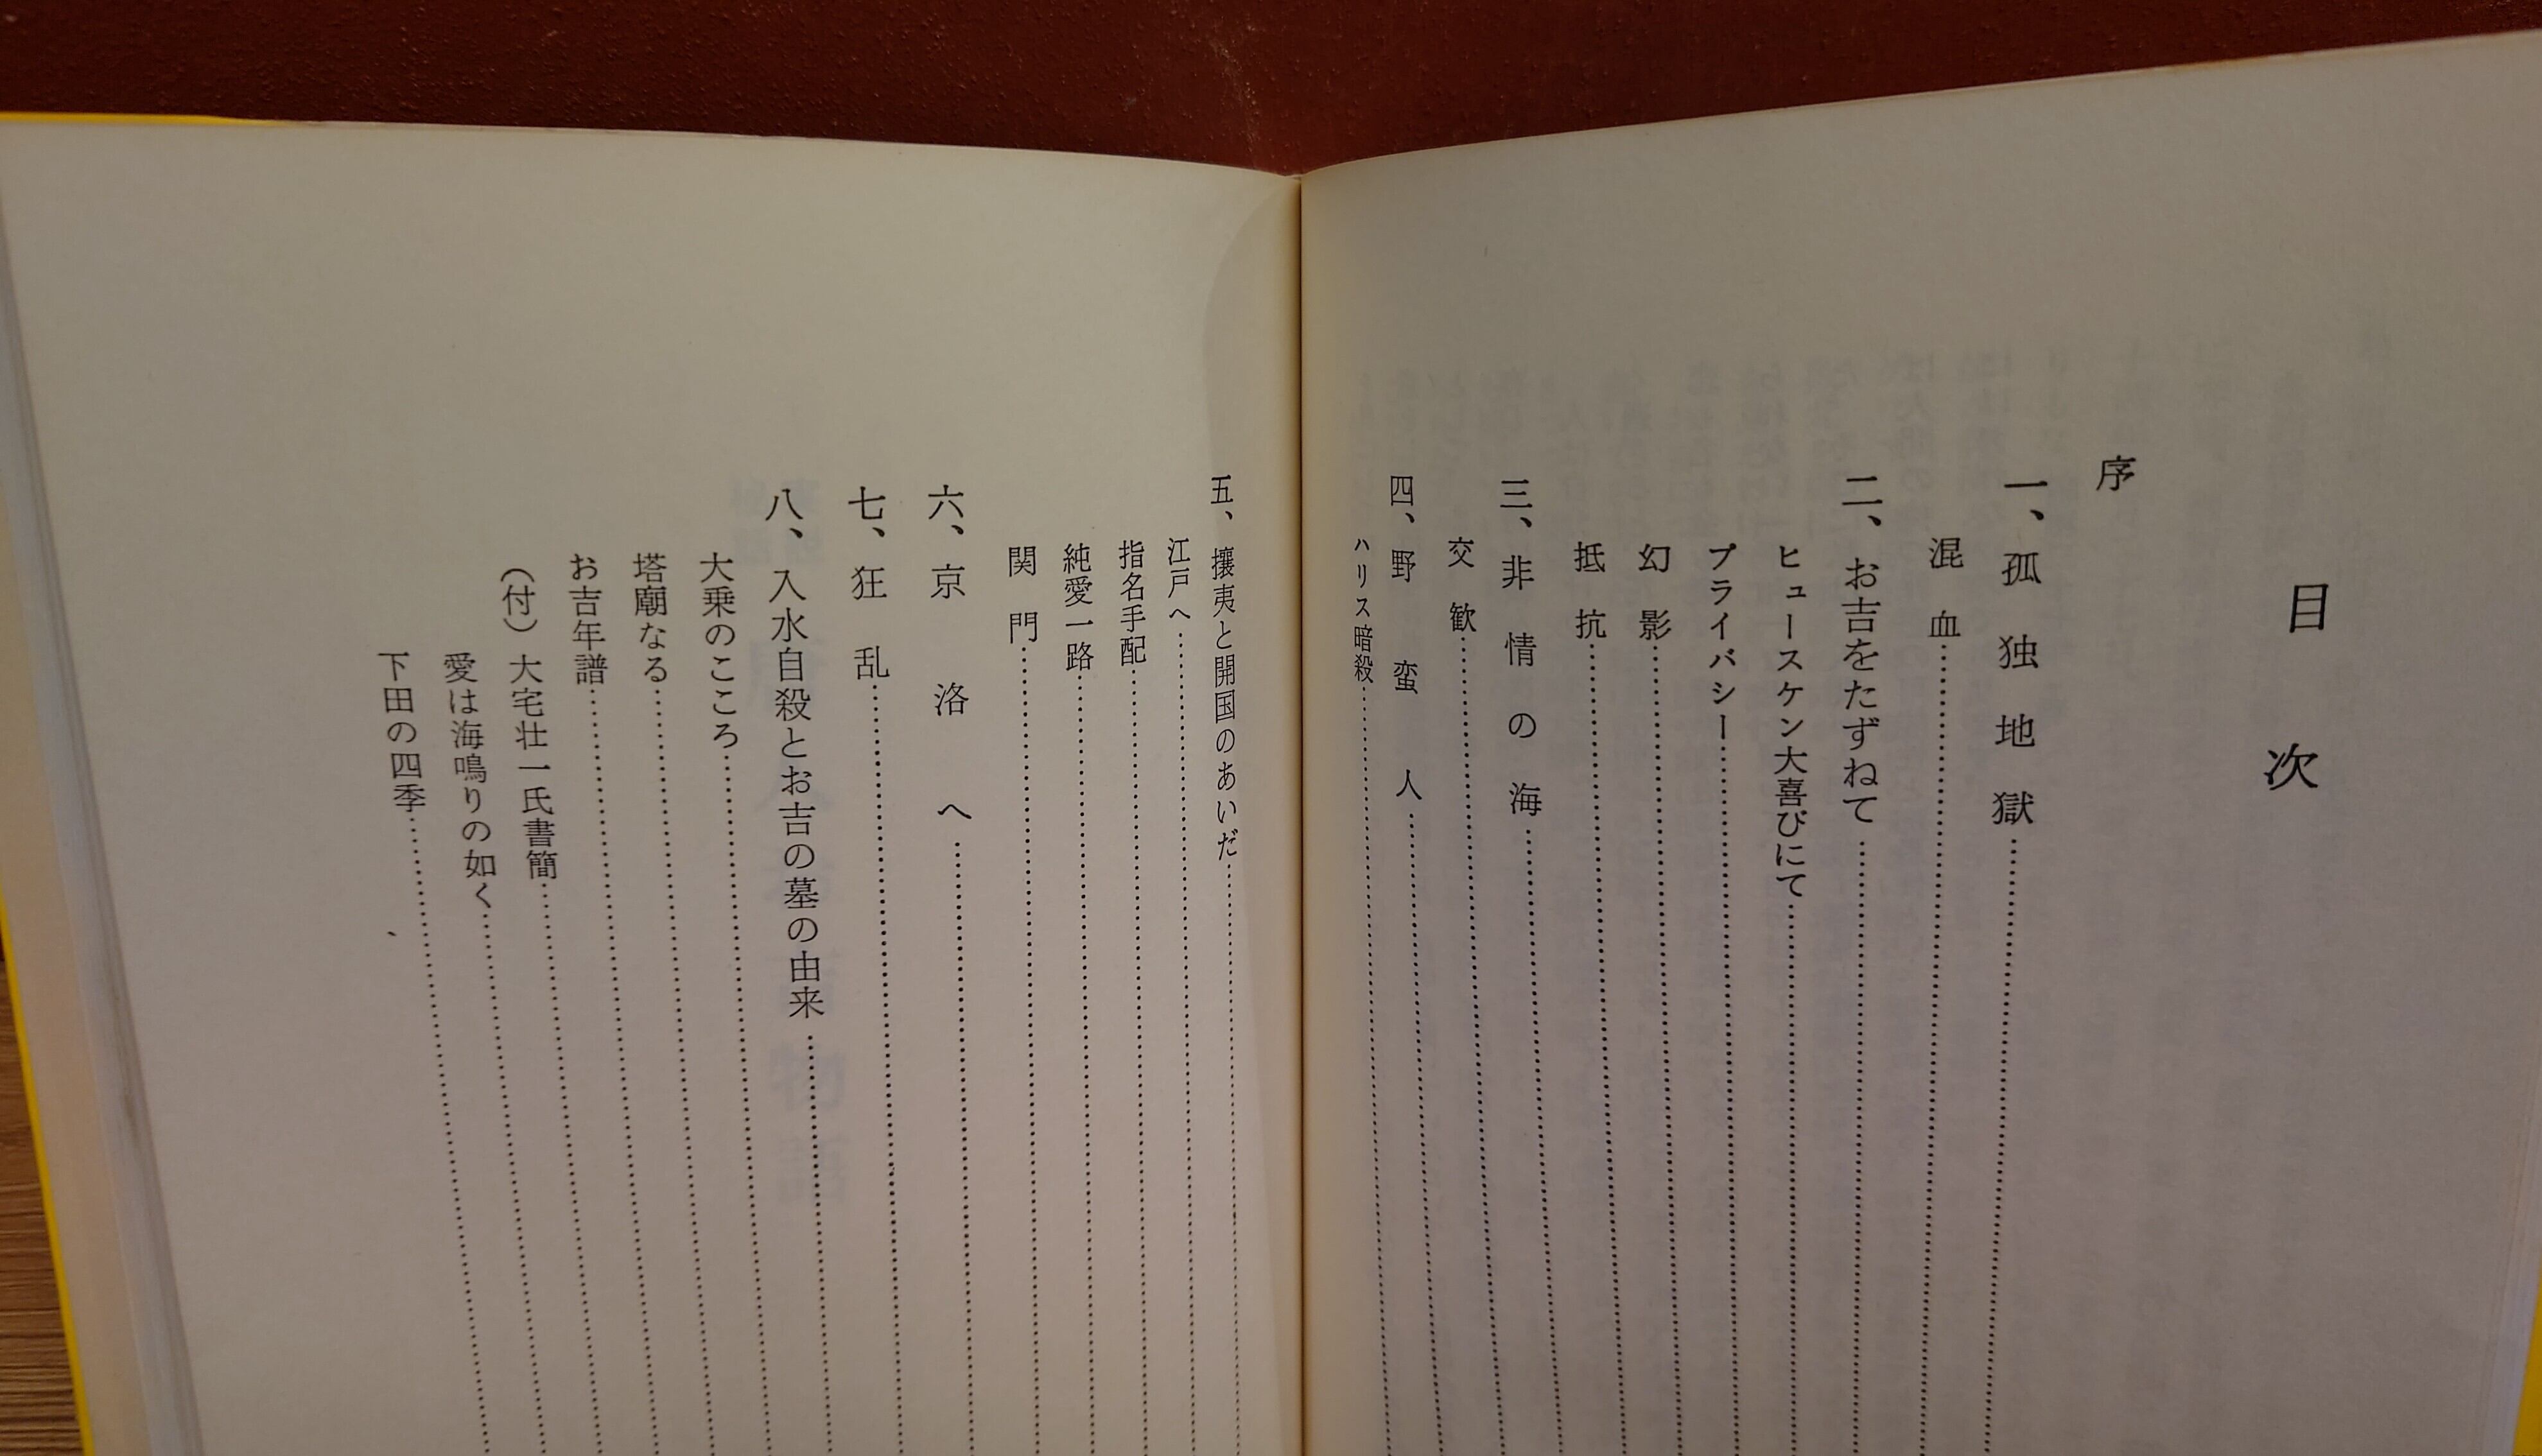 目次
序
一、孤独地獄
混血
二、お吉をたずねて
ヒュースケン大喜びにて
プライバシー
幻影
抵抗
三、非情の海
交歓
四、野蛮人
ハリス暗殺
五、攘夷と開国のあいだ
江戸へ
指名手配
純愛一路
関門
六、京洛へ
七、狂乱
八、入水自殺とお吉の墓の由来
大乗のこころ
塔廟なる
お吉年譜
（付）大宅壮一氏書簡
愛は海鳴りの如く
下田の四季